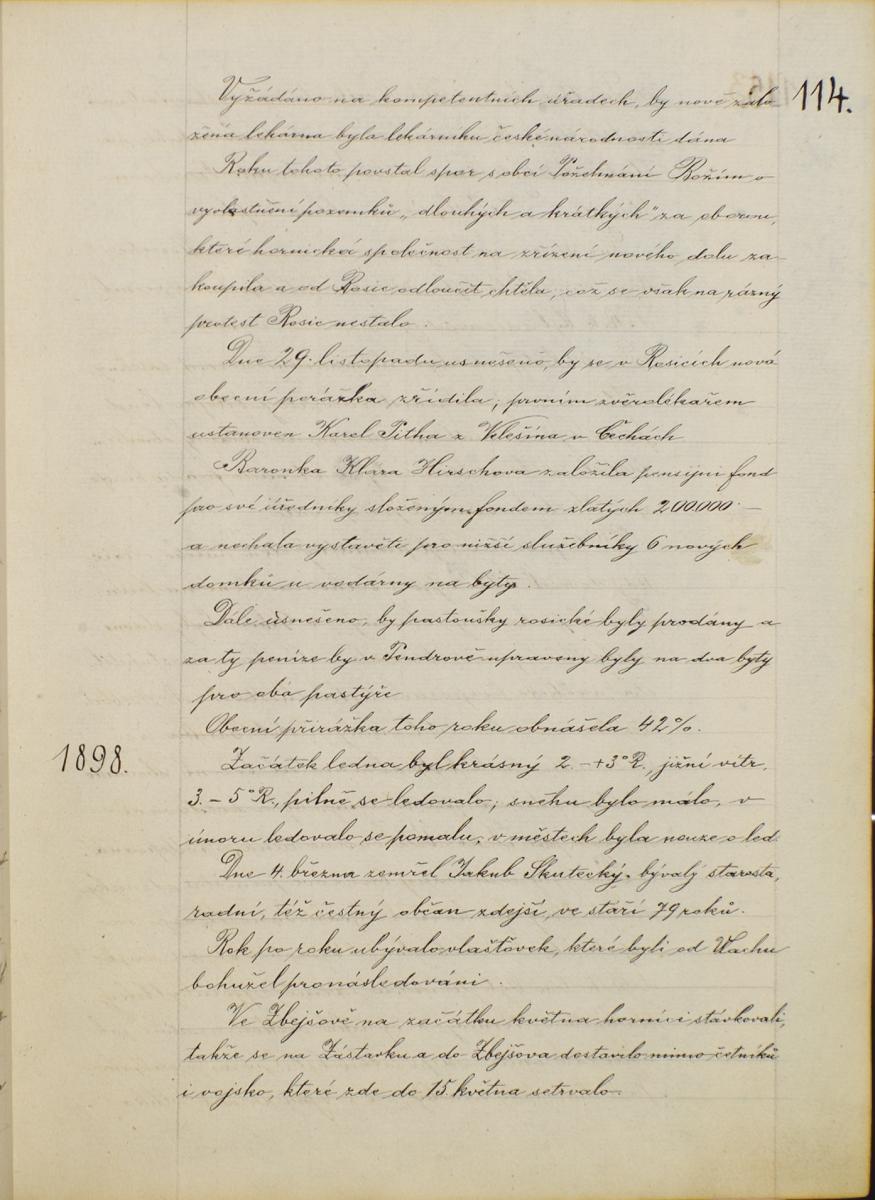 114.
Vyžádáno na kompetentních úřadech, by nově zalo
žená lekárna byla lekárníku české národnosti dána
Roku tohoto povstal spor s obcí Požehnání Božím o
vyvlastnění pozemků „dlouhých a krátkých" za oborou,
které hornická společnost na zřízení nového dolu za-
koupila a od Rosic odloučit chtěla, což se však na rázný
protest Rosic nestalo.
Dne 29. listopadu usnešeno, by se v Rosicích nová
obecní porážka zřídila; prvním zvěrolékařem
ustanoven Karel Pitha z Velešína v Čechách
Baronka Klára Hirschova založila pensijní fond
pro své úředníky složeným fondem zlatých 200.000 –
a nechala vystavěti pro nižší služebníky 6 nových
domků u vodárny na byty.
Dále usnešeno, by pastoušky rosické byly prodány a
za ty peníze by v Pendrově upraveny byly na dva byty
pro oba pastýře
Obecní přirážka toho roku obnášela 42%.
1898.
Začátek ledna byl krásný 2. – +3°R., jižní vítr,
3. – 5°R., pilně se ledovalo; sněhu bylo málo, v
únoru ledovalo se pomalu, v městech byla nouze o led.
Dne 4. března zemřel Jakub Skutecký, bývalý starosta,
radní, též čestný občan zdejší, ve stáří 79 roků.
Rok po roku ubývalo vlaštovek, které byli od Vlachu
bohužel pronásledováni.
Ve Zbejšově na začátku května horníci stávkovali,
takže se na Zástavku a do Zbejšova dostavilo mimo četníků
i vojsko, které zde do 15. května setrvalo.